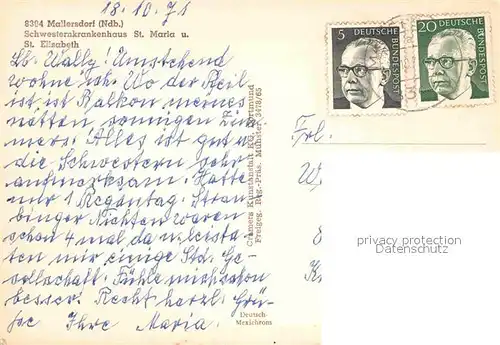 18.10.71
8304 Mallersdorf (Ndb.)
Schwesternkrankenhaus St. Maria u.
St. Elizabeth
Lb. Wally! Umstehend
wohne ich. Wo der Pfeil
ist ist Balkon meines
netten sonnigen Zim-
mers. Alles ist gut u.
die Schwestern sehr
aufmerksam. Hatte
nur 1 Regentag. Strau-
binger Nichten waren
schon 4 mal da u. leiste-
ten mir einige Std. Ge-
sellschaft. Fühle mich schon
besser. Recht herzl. Grü-
ße Ihre Maria.
Cramers Kunstanstalt KG, Dortmund
Freigeg. Reg.-Präs. Münster 3478/65
Deutsch-
Mexichrom
5
DEUTSCHE
BUNDESPOST
20
DEUTSCHE
BUNDESPOST
Frl.
privacy protection
Datenschutz